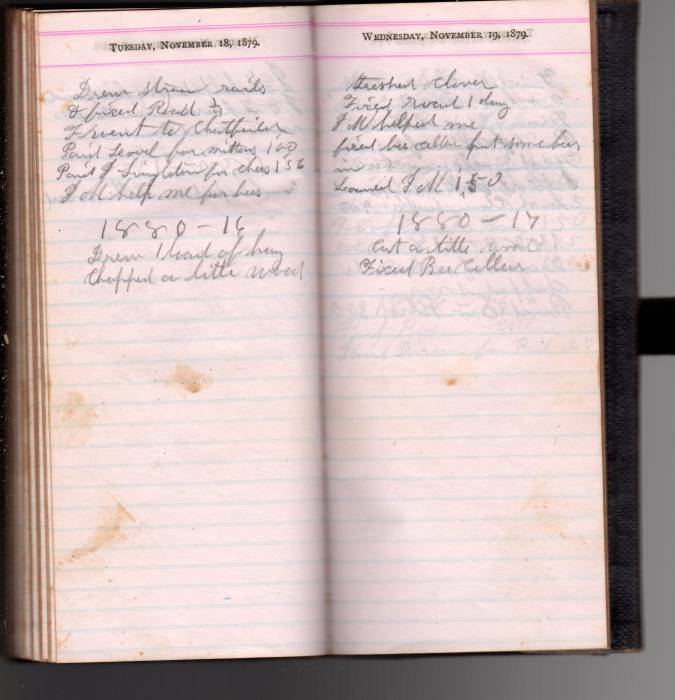 TUESDAY, NOVEMBER 18, 1879.
Drew straw rails
& fixed Road ½
I went to Chatfield
Paid Leovel for mittens 1 00
Paid J Singleton for chees 1 56
J M help me fix bees
1880 - 16
Drew 1 load of hay
Chopped a little wood
WEDNESDAY, NOVEMBER 19, 1879.
threshed clover
Fixed road 1 day
J M helped me
fixed bee celler put some bees
in
Loaned J M 1,50
1880 - 17
Cut a little wood
Fixed Bee Celler